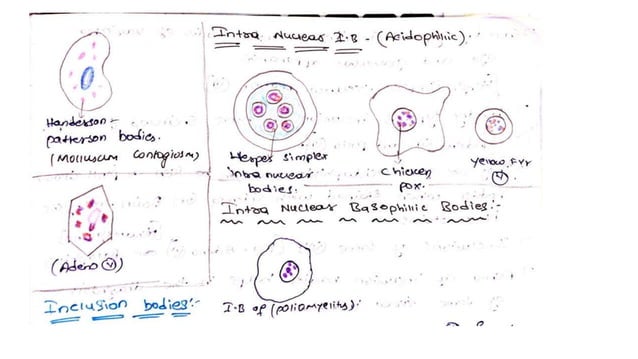 Handerson -
patterson bodies.
(Molluscum contagiosm)
(Adeno V)
Inclusion bodies:-
Intra Nuclear I.B - (Acidophilic).
Herpes simplex
intra nuclear
bodies.
Chicken
pox.
Yellow Fvr
V
Intra Nuclear Basophilic Bodies:-
I.B of (poliomyelitis).